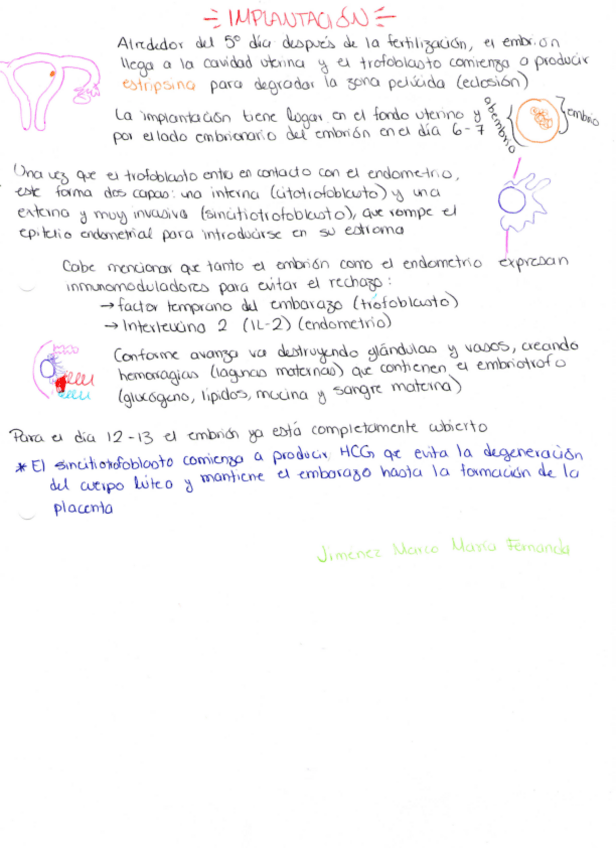 IMPLANTACIÓN
Alrededor del 5° día después de la fertilización, el embrión
llega a la cavidad uterina y el trofoblasto comienza a producir
estripsina para degradar la zona pelúcida (eclosión)
La implantación tiene lugar en el fondo uterino y
por el lado embrionario del embrión en el día 6-7
abembrio
embrio
Una vez que el trofoblasto entra en contacto con el endometrio,
este forma dos capas: una interna (citotrofoblasto) y una
externa y muy invasiva (sincitiotrofoblasto), que rompe el
epitelio endometrial para introducirse en su estroma
Cabe mencionar que tanto el embrión como el endometrio expresan
inmunomoduladores para evitar el rechazo:
→ factor temprano del embarazo (trofoblasto)
→ Interleucina 2 (IL-2) (endometrio)
Conforme avanza va destruyendo glándulas y vasos, creando
hemorragias (lagunas maternas) que contienen el embriotrofo
(glucógeno, lípidos, mucina y sangre materna)
Para el día 12-13 el embrión ya está completamente cubierto
* El sincitiotrofoblasto comienza a producir HCG que evita la degeneración
del cuerpo lúteo y mantiene el embarazo hasta la formación de la
placenta
Jimenez Marco María Fernanda